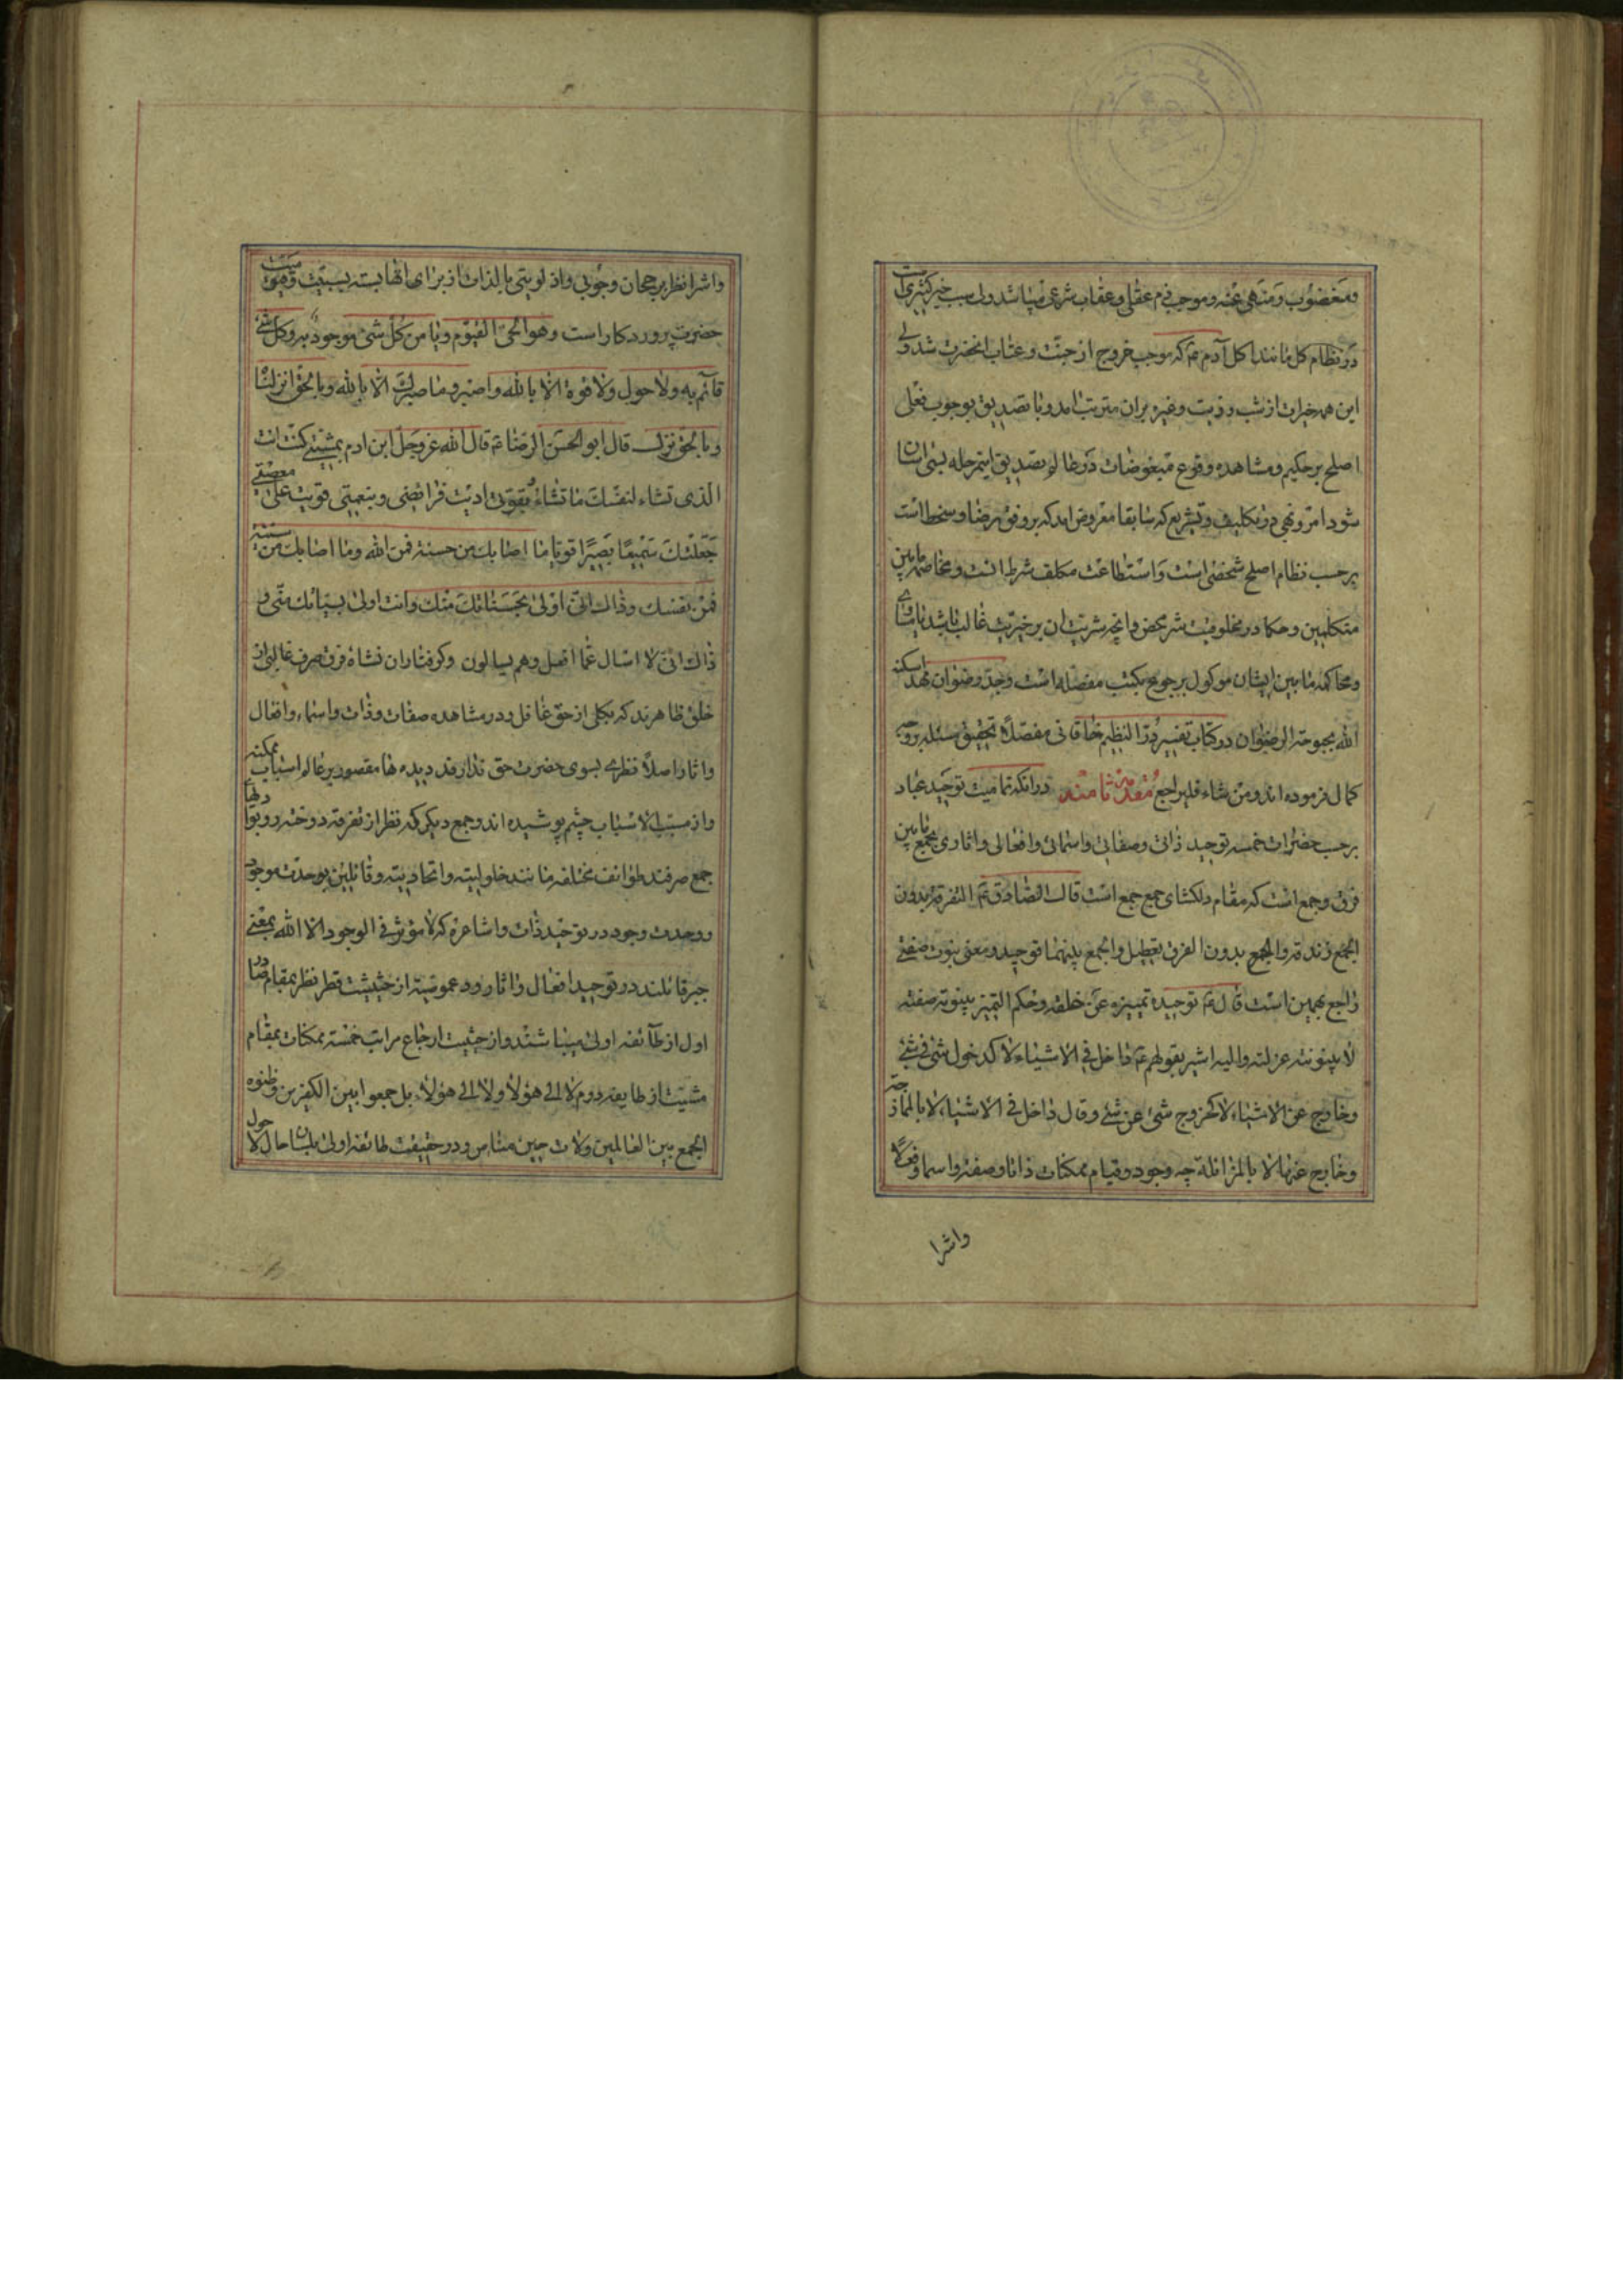 ومغضوب ومنهی عنه وموجب ذم عقلی وعقاب شرعی میباشد ولی سبب خیر کثیری است
در نظام کل مانند اکل آدم ع که موجب خروج از جنّت و عتاب انحضرت شد ولی
این همه خیرات از شب و ذریت وغیره بران مترتب امد وبا تصدیق بوجوب فعل
اصلح بر حکیم ومشاهده وقوع مبغوضات در عالم تصدیق اینمرحله بسی اسان
شود امر ونهی در تکلیف وتشریع که سابقا معروض امد که بر وفق رضا وسخط است
بر حسب نظام اصلح شخصی است واستطاعت مکلف شرط انست ومخاصمه مابین
متکلمین وحکما در مخلوقیت شر محض وانچه شریت ان بر خیریت غالب باشد یا مساوی
ومحاکمه مابین ایشان موکول برجوع بکتب مفصله است وجد رضوان مهد اسکنه
الله بحبوحة الرضوان در کتاب تفسیر در النظیم خاقانی مفصلاً تحقیق مسئله بر وجه
کمال فرموده اند ومن شاء فلیراجع مقدمه ثامنه در انکه تمامیت توحید عباد
بر حسب حضرات خمسه توحید ذاتی وصفاتی واسمائی وافعالی واثاری بجمع مابین
فرق وجمع است که مقام دلکشای جمع جمع است قال الصادق ع التفرقة بدون
الجمع زندقه والجمع بدون الفرق تعطیل والجمع بینهما توحید ومعنی بینونت صفتی
راجع بهمین است قال ع توحیده تمییزه عن خلقه وحکم التمیز بینونة صفته
لا بینونته عزلته والیه اشیر بقولهم ع داخل فی الاشیاء لا کدخول شئ فی شئ
وخارج عن الاشیاء لا کخروج شئ عن شئ وقال داخل فی الاشیاء لا بالممازجة
وخارج عنها لا بالمزائلة چه وجود وقیام ممکنات ذاتا وصفة واسما وفعلا
واثرا
واثرا نظر برجحان وجوبی واذ لویتی بالذات از برای انها بسته بسببیت وقیومیت
حضرت پروردکار است وهو الحی القیوم ویا من کل شئ موجود به وکل شئ
قائم به ولا حول ولا قوة الا بالله واصبر وما صبرک الا بالله وبالحق انزلناه
وبالحق نزل قال ابو الحسن الرضا ع قال الله عز وجل ابن ادم بمشیتی کنت انت
الذی تشاء لنفسک ما تشاء وبقوتی ادیت فرائضی وبنعمتی قویت علی معصیتی
جعلتک سمیعا بصیرا قویا ما اصابک من حسنة فمن الله وما اصابک من سیئة
فمن نفسک وذاک انی اولی بحسناتک منک وانت اولی بسیئاتک منی و
ذاک انی لا اسال عما افعل وهم یسالون وکرفتاران نشاه فرق صرف غالبی از
خلق ظاهرند که بکلی از حق غافل ودر مشاهده صفات وذات واسماء وافعال
واثار اصلاً نظری بسوی حضرت حق ندارند دیده ها مقصور بر عالم اسباب ممکنه
واز مسبب الاسباب چشم پوشیده اند وجمع دیکر که نظر از تفرقه دوخته ورو بوا دیهای
جمع صرفند طوائف مختلفه مانند حلولیته واتحادیته وقائلین بوحدت موجود
ووحدت وجود در توحید ذات واشاعره که لا مؤثر فی الوجود الا الله بمعنی
جبر قائلند در توحید افعال واثار ودعموصیته از حیثیت قطر نظر بمقام صادر
اول از طائفه اولی میباشند واز حیثیت ارجاع مراتب خمسه ممکنات بمقام
مشیت از طایفه دوم لا الی هؤلاء ولا الی هؤلاء بل جمعوا بین الکفرین وظنوه
الجمع بین العالمین ولات حین مناص ودر حقیقت طائفه اولی بلسان حال لا حول